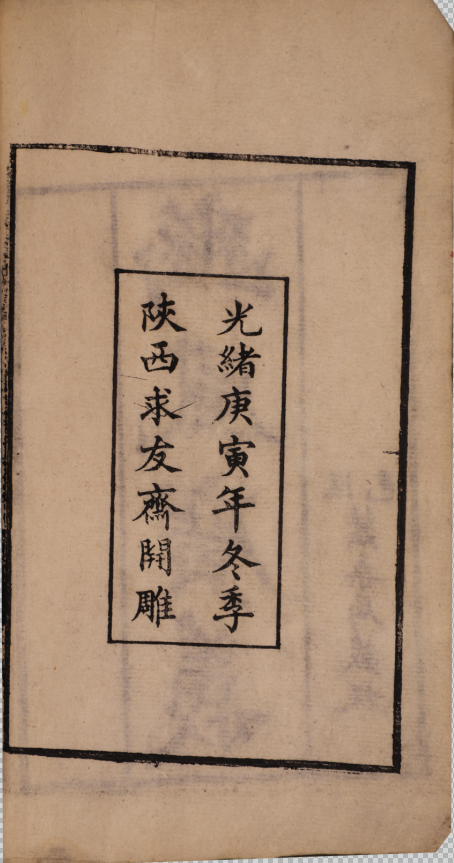 光緒庚寅年冬季
陜西求友齋開雕